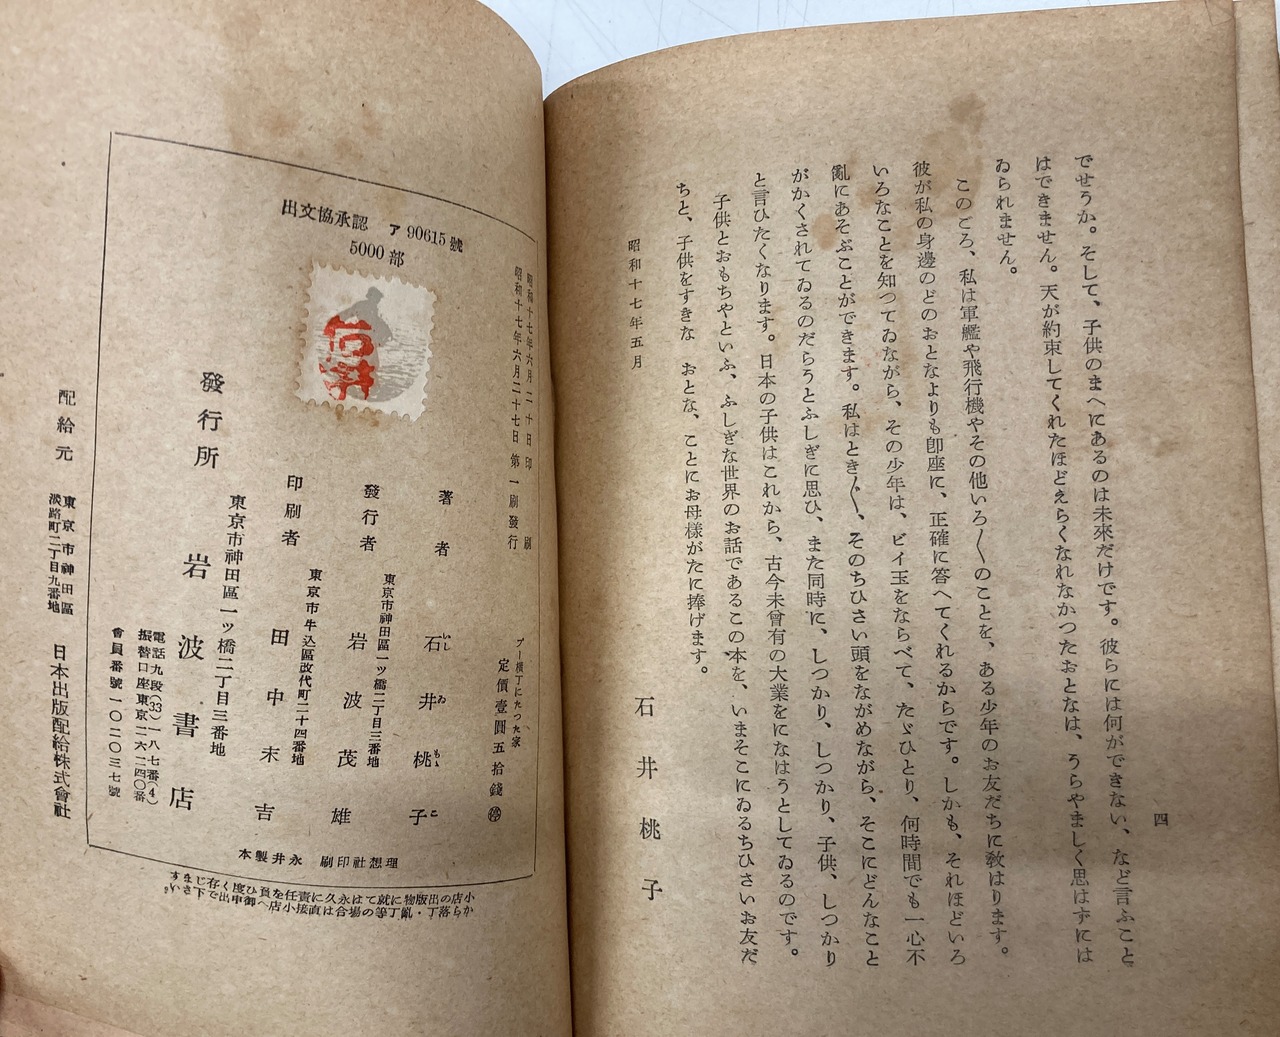 四
でせうか。そして、子供のまへにあるのは未來だけです。彼らには何ができない、など言ふこと
はできません。天が約束してくれたほどえらくなれなかつたおとなは、うらやましく思はずには
ゐられません。
このごろ、私は軍艦や飛行機やその他いろ〳〵のことを、ある少年のお友だちに敎はります。
彼が私の身邊のどのおとなよりも卽座に、正確に答へてくれるからです。しかも、それほどいろ
いろなことを知つてゐながら、その少年は、ビイ玉をならべて、たゞひとり、何時間でも一心不
亂にあそぶことができます。私はとき〴〵、そのちひさい頭をながめながら、そこにどんなこと
がかくされてゐるのだらうとふしぎに思ひ、また同時に、しつかり、しつかり、子供、しつかり
と言ひたくなります。日本の子供はこれから、古今未曾有の大業をになはうとしてゐるのです。
子供とおもちやといふ、ふしぎな世界のお話であるこの本を、いまそこにゐるちひさいお友だ
ちと、子供をすきな おとな、ことにお母様がたに捧げます。
昭和十七年五月
石井桃子
出文協承認 ア90615號
5000部
昭和十七年六月二十日印刷
昭和十七年六月二十七日第一刷發行
石井
プー横丁にたつた家
定價壹圓五拾錢 ㊕
著者 石井桃子
いしゐもゝこ
發行者 東京市神田區一ツ橋二丁目三番地 岩波茂雄
印刷者 東京市牛込區改代町二十四番地 田中末吉
發行所 東京市神田區一ツ橋二丁目三番地 岩波書店
電話九段(33)一八七番(4)
振替口座東京二六二四〇番
會員番號一〇二〇三七號
理想社印刷 永井製本
小店の出版物に就ては永久に責任を負ひ度く存じます
から落丁・亂丁等の場合は直接小店へ御申出で下さい。
配給元 東京市神田區淡路町二丁目九番地 日本出版配給株式會社